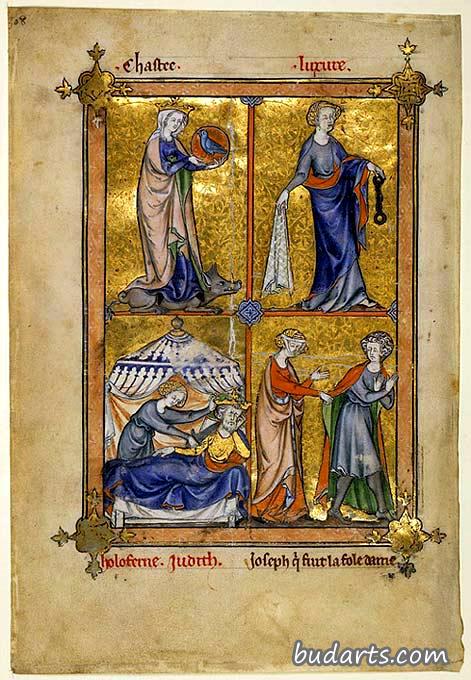 · Chastee · · luxure ·
holoferne · Judith. Joseph q̃ fuit la fole dame
budarts.com